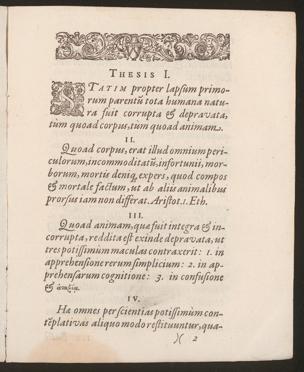 THESIS I.
STATIM propter lapsum primo-
rum parentũ tota humana natu-
ra fuit corrupta & depravata,
tùm quoad corpus, tùm quoad animam.
II.
Quoad corpus, erat illud omnium peri-
culorum, incommoditatũ, infortunii, mor-
borum, mortis deniq, expers, quod compos
& mortale factum, ut ab aliis animalibus
prorsus iam non differat. Aristot. 1. Eth.
III.
Quoad animam, quæ fuit integra & in-
corrupta, reddita est exinde depravata, ut
tres potissimùm maculas contraxerit: 1. in
apprehensione rerum simplicium: 2. in ap-
prehensarum cognitione: 3. in confusione
&
IV.
Hæ omnes per scientias potissimùm con-
tẽplativas aliquo modo restituuntur, qua-
)( 2